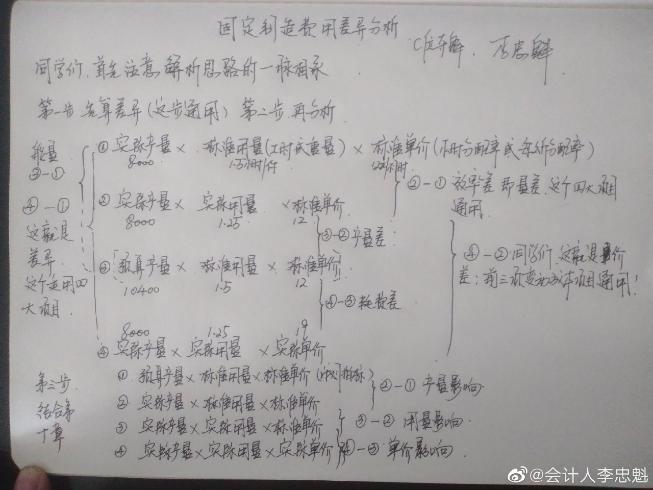 固定制造费用差异分析
李忠魁
同学们，首先注意解析思路的一脉相承
第一步 先算差异（这步通用） 第二步 再分析
能量
③-①
④-①
这就是
差异
这个适用四
大项目
① 实际产量 × 标准用量（工时或重量） × 标准单价（小时分配率或每斤分配率）
8000 1.5小时/件
② 实际产量 × 实际用量 × 标准单价
8000 1.25 12
③ 预算产量 × 标准用量 × 标准单价
10400 1.5 12
8000 1.25 19
④ 实际产量 × 实际用量 × 实际单价
②-① 效率差 即量差，这个四大项目
通用
③-② 产量差
④-③ 耗费差
④-② 同学们，这就是价
差：前三项变动成本项目通用！
第三步
结合第
十章
① 预算产量 × 标准用量 × 标准单价
② 实际产量 × 标准用量 × 标准单价
③ 实际产量 × 实际用量 × 标准单价
④ 实际产量 × 实际用量 × 实际单价
②-① 产量影响
③-② 用量影响
④-③ 单价影响
@会计人李忠魁